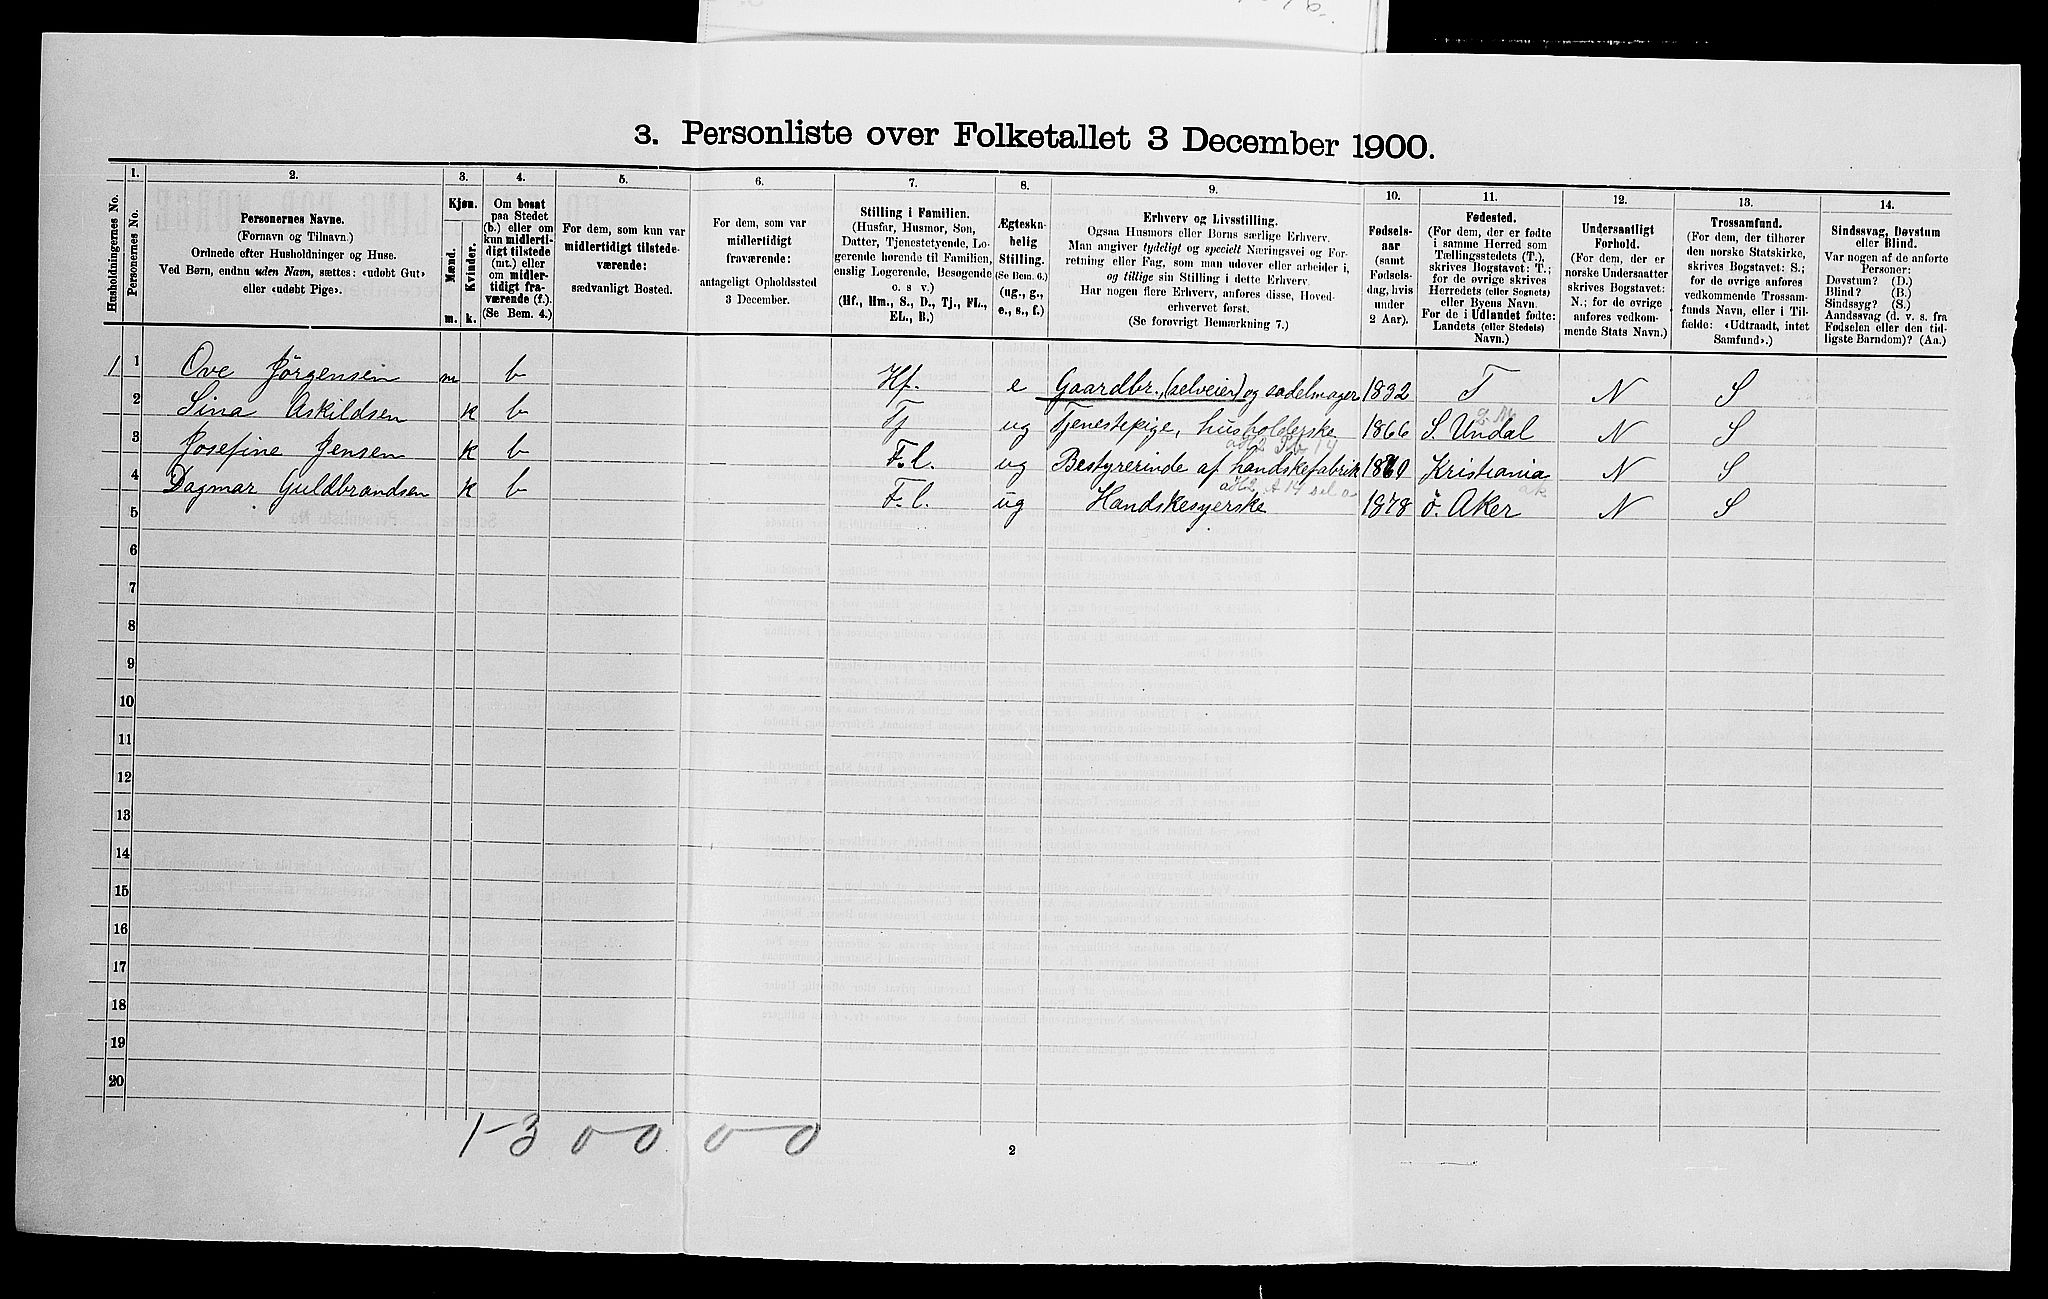 3. Personliste over Folketallet 3 December 1900.
Husholdningernes No.
1.
Personernes No.
2.
Personernes Navne.
(Fornavn og Tilnavn.)
Ordnede efter Husholdninger og Huse.
Ved Børn, endnu uden Navn, sættes: «udøbt Gut»
eller «udøbt Pige».
3.
Kjøn.
Mænd.
Kvinder.
m.
k.
4.
Om bosat
paa Stedet
(b.) eller om
kun midlerti-
digt tilstede
(mt.) eller
om midler-
tidigt fra-
værende (f.).
(Se Bem. 4.)
5.
For dem, som kun var
midlertidigt tilstede-
værende:
sædvanligt Bosted.
6.
For dem, som var
midlertidigt
fraværende:
antageligt Opholdssted
3 December.
7.
Stilling i Familien.
(Husfar, Husmor, Søn,
Datter, Tjenestetyende, Lo-
gerende hørende til Familien,
enslig Logerende, Besøgende
o. s v.)
(Hf., Hm., S., D., Tj., FL.,
EL., B.)
8.
Ægteskn-
belig
Stilling.
(Se Bem. 6.)
(ug., g.,
e., s., f.)
9.
Erhverv og Livsstilling.
Ogsaa Husmors eller Børns særlige Erhverv.
Man angiver tydeligt og specielt Næringsvei og For-
retning eller Fag, som man udøver eller arbeider i,
og tillige sin Stilling i dette Erhverv.
Har nogen flere Erhverv, anføres disse, Hoved-
erhvervet først.
(Se forøvrigt Bemærkning 7.)
10.
Fødsels-
aar
(samt
Fødsels-
dag, hvis
under
2 Aar).
11.
Fødested.
(For dem, der er fødte
i samme Herred som
Tællingsstedets (T.),
skrives Bogstavet: T.;
for de øvrige skrives
Herredets (eller Sognets)
eller Byens Navn.
For de i Udlandet fødte:
Landets (eller Stedets)
Navn.)
12.
Undersaatligt
Forhold.
(For dem, der er
norske Undersaatter
skrives Bogstavet:
N.; for de øvrige
anføres vedkom-
mende Stats Navn.)
13.
Trossamfund.
(For dem, der tilhører
den norske Statskirke,
skrives Bogstavet: S.;
for de øvrige anføres
vedkommende Trossam-
funds Navn, eller i Til-
fælde: «Udtraadt, intet
Samfund».)
14.
Sindssvag, Døvstum
eller Blind.
Var nogen af de anførte
Personer:
Døvstum? (D.)
Blind? (B.)
Sindssyg? (S.)
Aandssvag (d. v. s. fra
Fødselen eller den tid-
ligste Barndom)? (Aa.)
1 1 Ove Jørgensen m b Hf. e Gaardbr., (selveier) og sadelmager 1832 T N S
2 Sina Askildsen k b Tj ug Tjenestepige, husholderske 1866 S. Undal N S
3 Josefine Jensen k b F.l. ug Bestyrerinde af handskefabrik 1860 Kristiania N S
4 Dagmar Guldbrandsen k b F.l. ug Handskesyerske 1878 ö. Aker N S
5
6
7
8
9
10
11
12
13
14
15
16
17
18
19
20
1-3 0 0 0 0
2